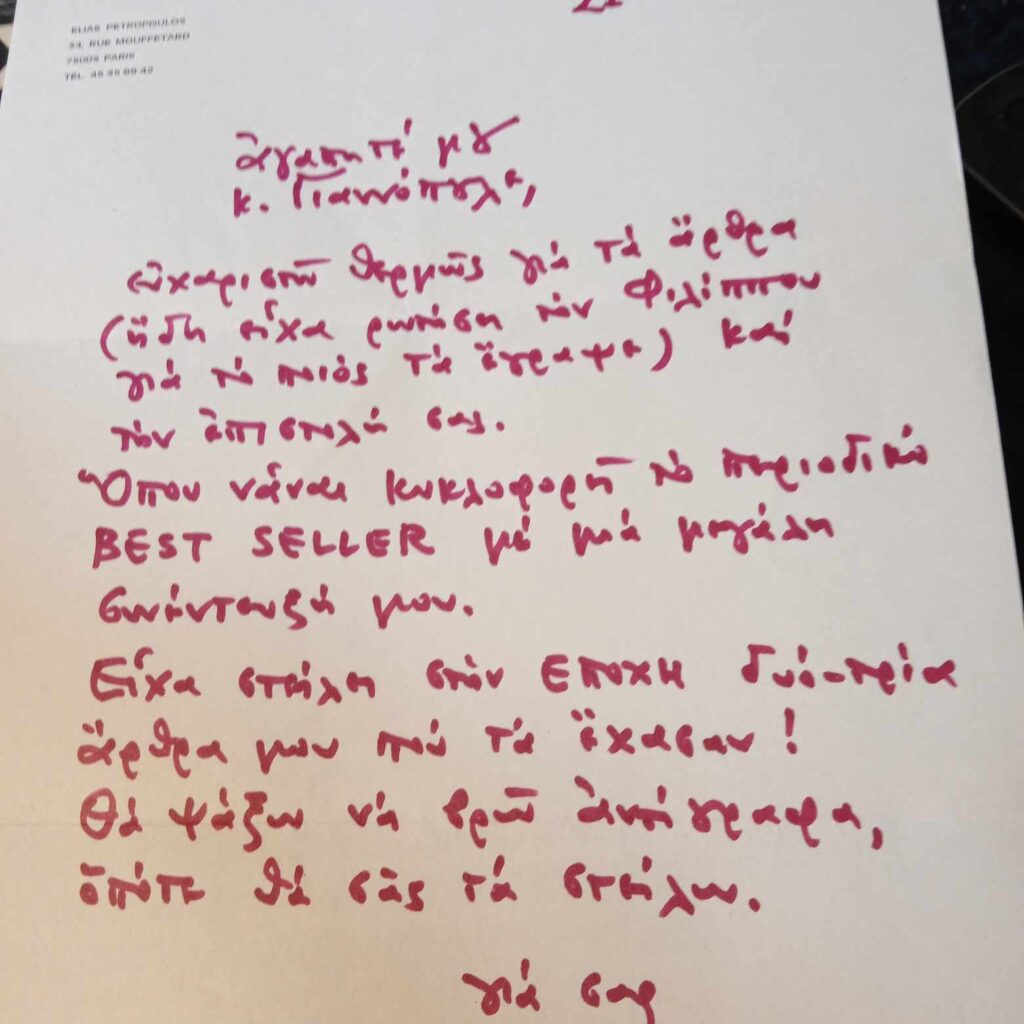 ELIAS PETROPOULOS
34, RUE MOUFFETARD
75005 PARIS
TEL.
ἀγαπητέ μȣ
κ. Γιαννόπȣλε,
εὐχαριστῶ θερμῶς γιά τά ἄρθρα
(ἤδη εἶχα ρωτήση τόν Φιλίππου
γιά τό ποιός τά ἔγραψε) καί
τήν ἐπιστολή σας.
Ὅπου νἄναι κυκλοφορῆ τό περιοδικό
BEST SELLER μέ μιά μεγάλη
συνέντευξή μου.
Εἶχα στείλη στήν ΕΠΟΧΗ δυό-τρία
ἄρθρα μου πού τά ἔχασαν!
Θά ψάξω νά βρῶ ἀντίγραφα,
ὁπότε θά σᾶς τά στείλω.
γιά σας